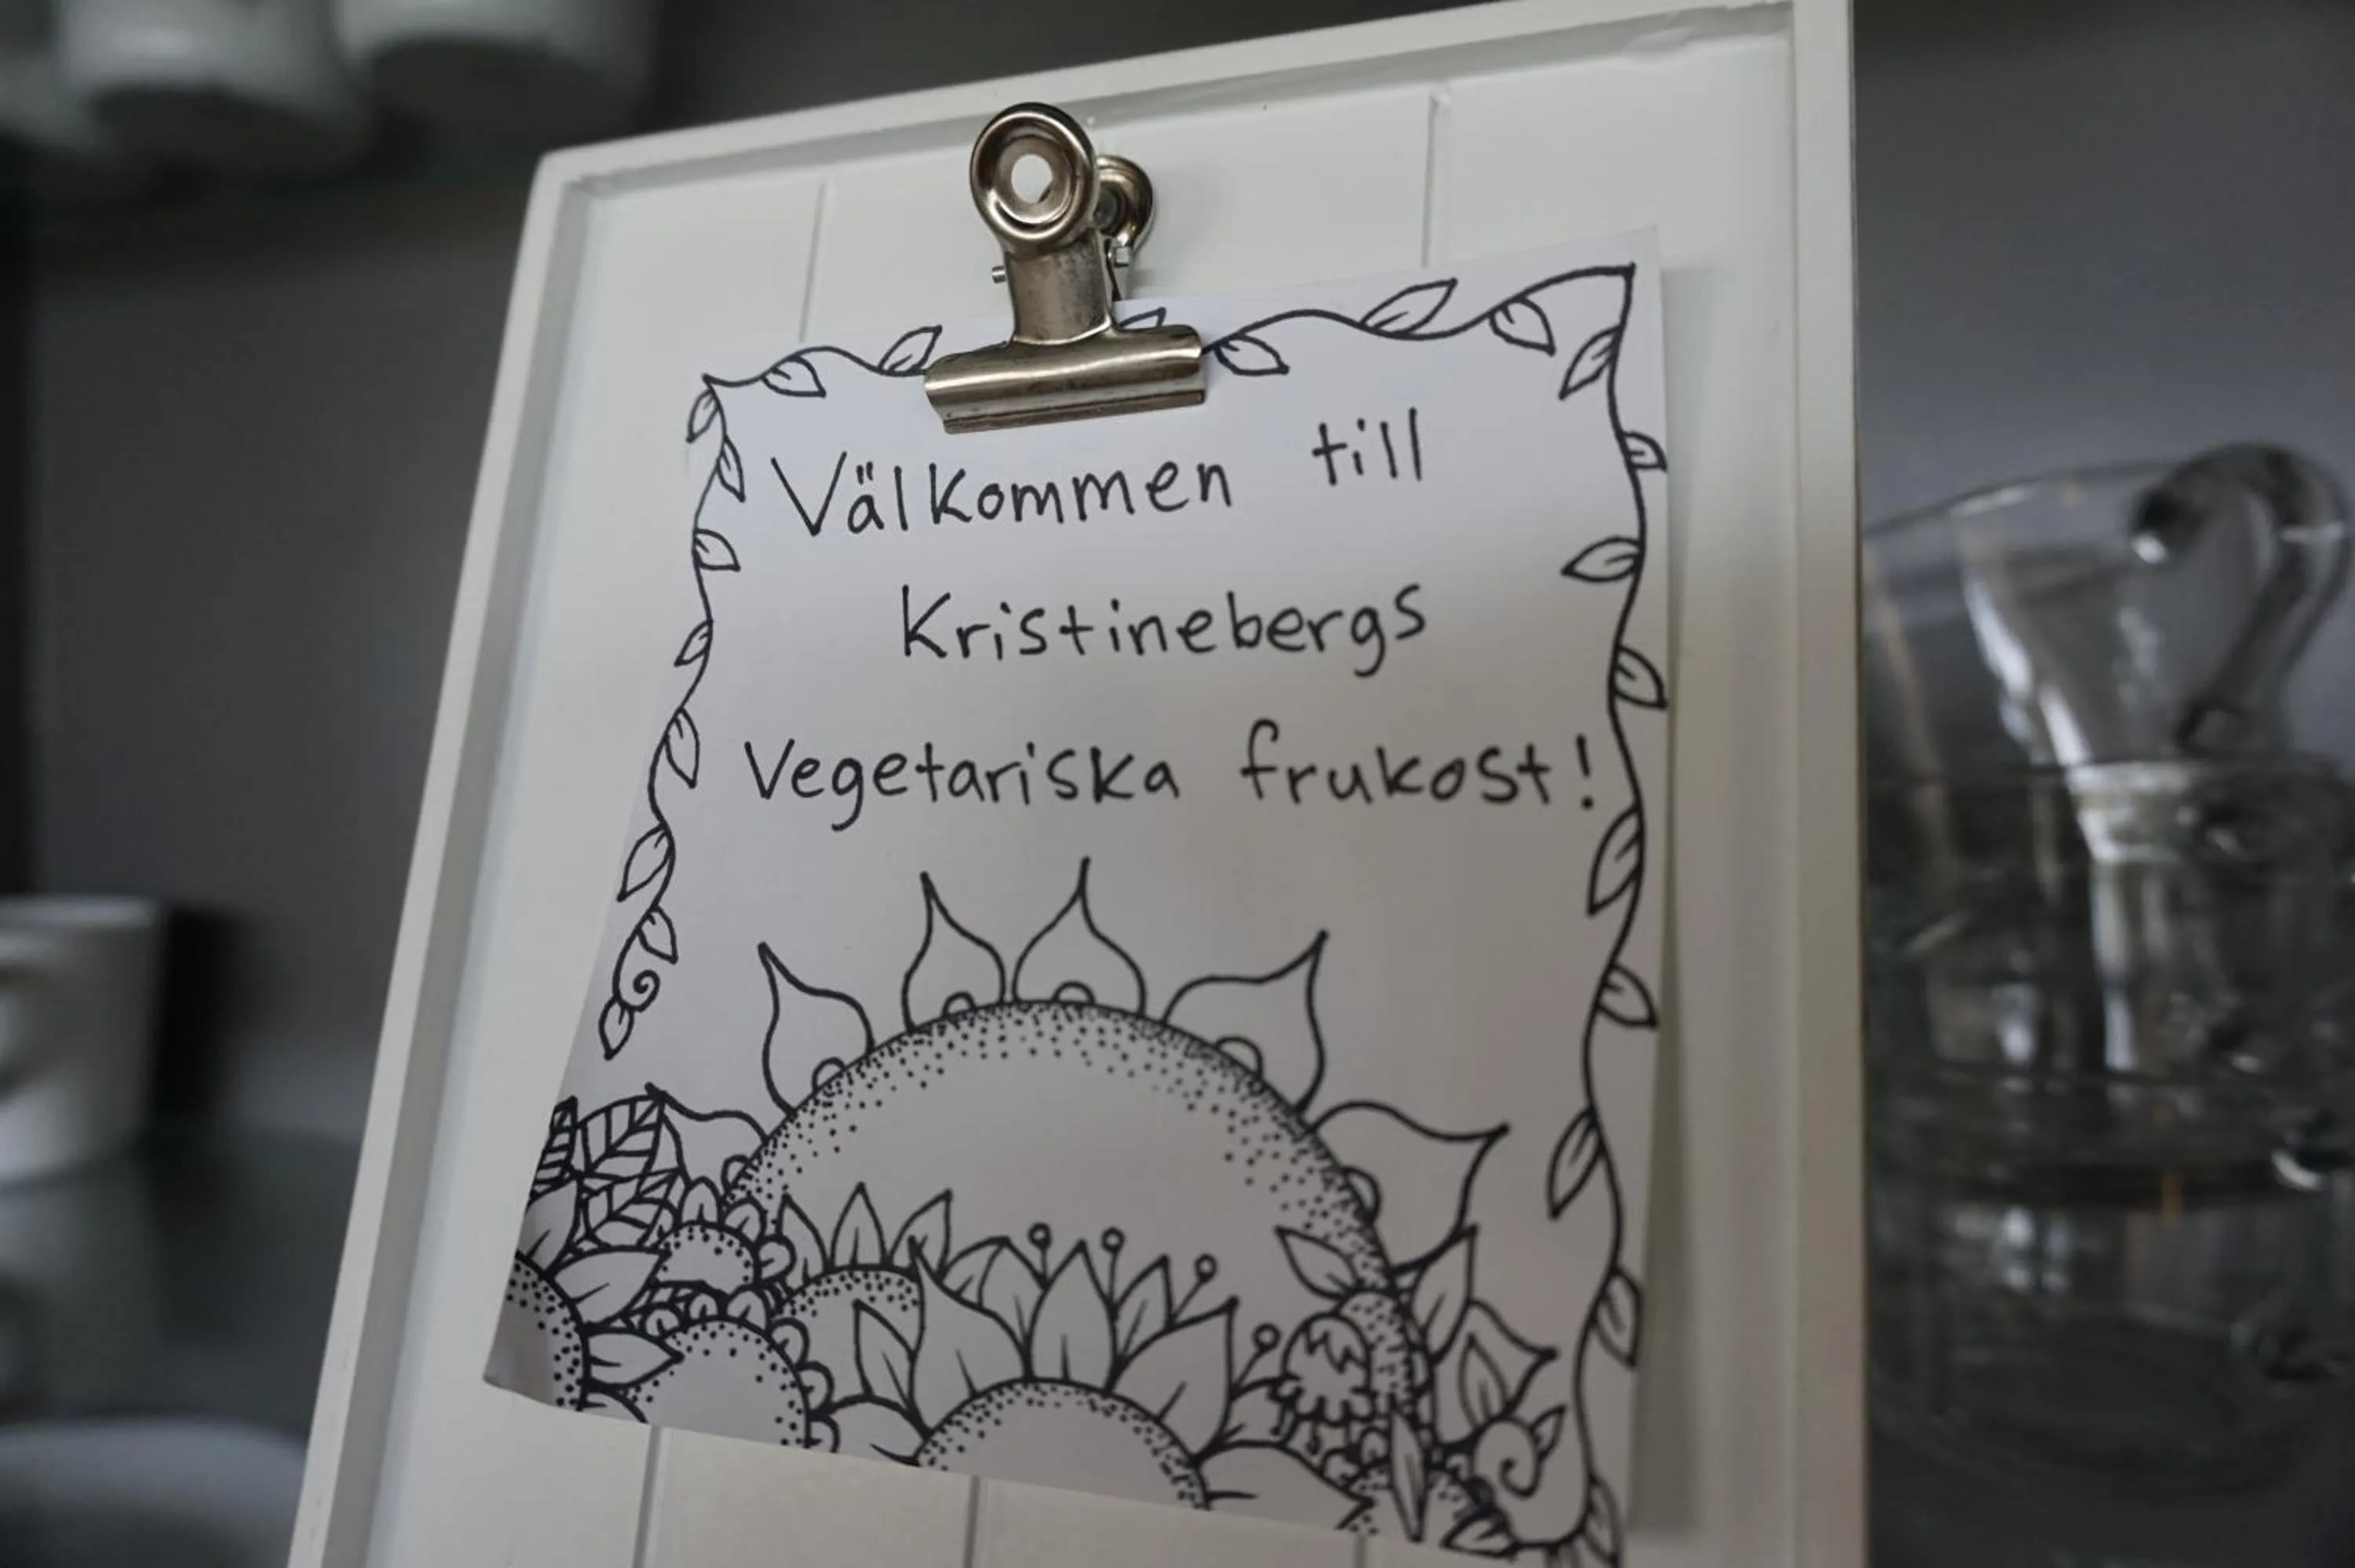 Välkommen till
Kristinebergs
Vegetariska frukost!